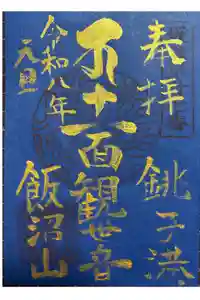 奉拝 銚子港
十一面観世音
令和八年
元旦
飯沼山